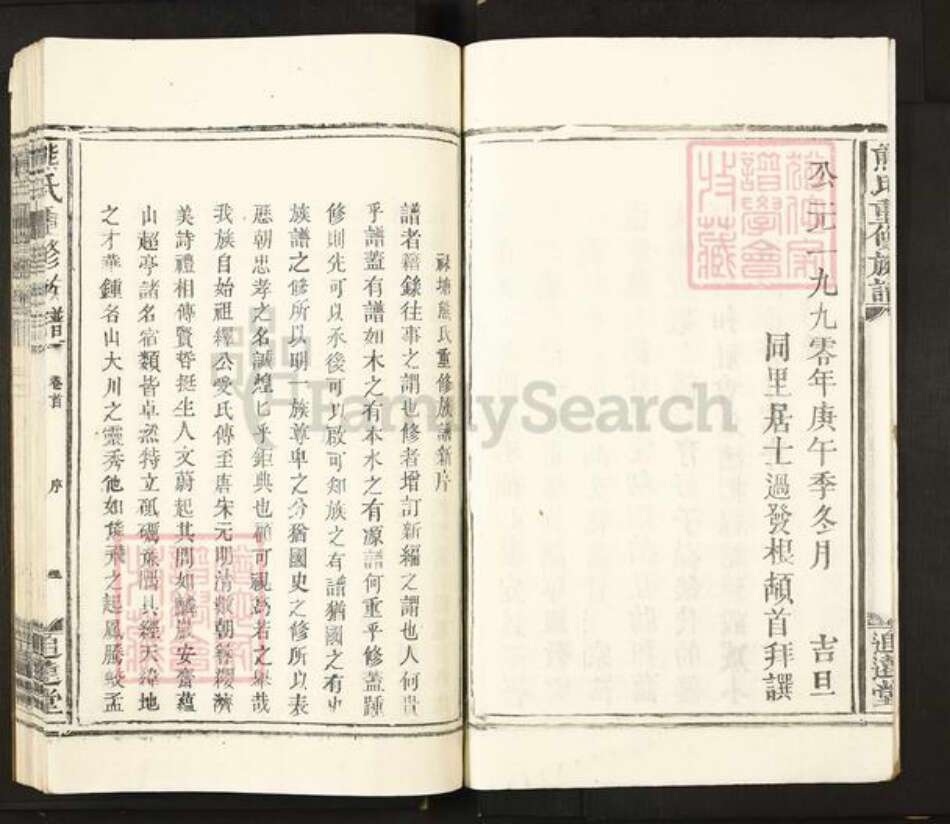 熊氏重修族譜
追遠堂
公元一九九零年庚午季冬月 吉旦
同里居士過發根頓首拜譔
家譜學會
收藏
塘熊氏重修族譜新序
譜者籍錄往事之謂也修者增訂新編之謂也人何貴
乎譜蓋有譜如木之有本水之有源譜何重乎修蓋踵
修則先可以承後可以啟可知族之有譜猶國之有史
族譜之修所以明一族尊卑之分猶國史之修所以表
歷朝忠孝之名誠煌匕乎鉅典也顧可視為若之果哉
我族自始祖繹公受氏傳至唐宋元明清數朝簪纓濟
美詩禮相傳賢哲挺生人文蔚起其間如鱗巖安齋蘊
山超亭諸名宿類皆卓然特立砥礪廉隅具經天緯地
之才華鍾名山大川之靈秀他如 飛之起鳳騰蛟孟
熊氏重修族譜
卷首
序
追遠堂
FamilySearch